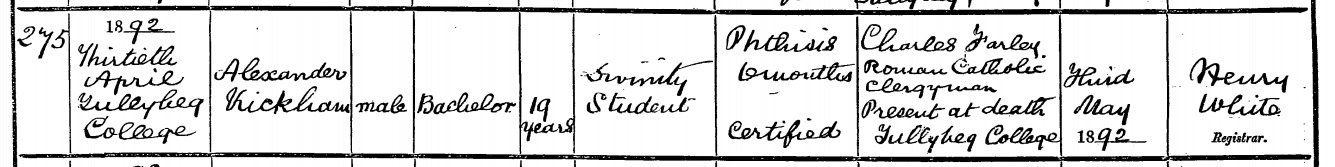 275
1892
Thirtieth
April
Tullybeg
College
Alexander
Kickham
male
Bachelor
19
years
Divinity
Student
Phthisis
6 months
Certified
Charles Farley
Roman Catholic
Clergyman
Present at death
Tullybeg College
Third
May
1892
Henry
White
Registrar.